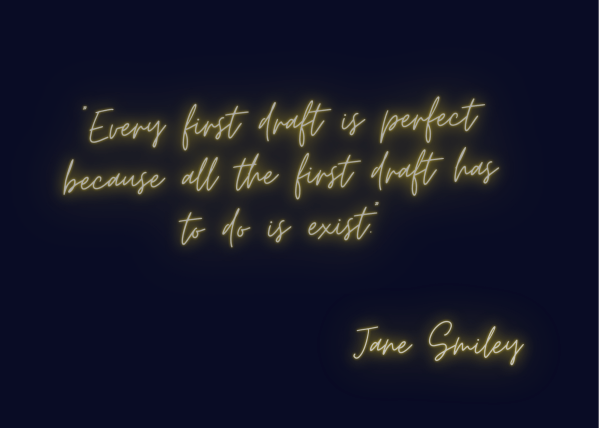 "Every first draft is perfect
because all the first draft has
to do is exist."
Jane Smiley